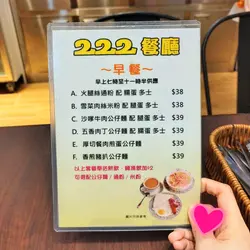 222 餐廳
～早餐～
早上七時至十一時半供應
A. 火腿絲通粉 配 腸蛋 多士 $38
B. 雪菜肉絲米粉 配 腸蛋 多士 $38
C. 沙嗲牛肉公仔麵 配 腸蛋 多士 $39
D. 五香肉丁公仔麵 配 腸蛋 多士 $39
E. 厚切餐肉煎蛋公仔麵 $39
F. 香煎豬扒公仔麵 $39
以上餐類學送熱飲，轉凍飲加$2
可選配公仔麵 / 通粉 / 米粉
圖片只供參考